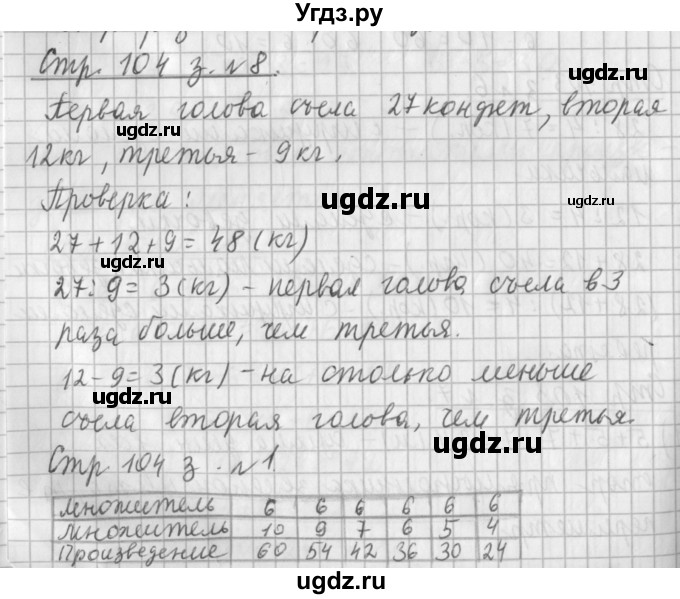 Угдз.ру
Стр. 104 з. №8.
Первая голова съела 27 конфет, вторая
ugdz.ru
12кг, третья - 9кг.
ugdz.ru
Проверка:
27+12+9=48(кг)
ugdz.ru
27:9=3(кг) - первая голова съела в 3
раза больше, чем третья.
12-9=3(кг) - на столько меньше
ugdz.ru
съела вторая голова, чем третья.
ugdz.ru
Стр 104 з. №1
Множитель 6 6 6 6 6 6
Множитель 10 9 7 6 5 4
Произведение 60 54 42 36 30 24
ugdz.ru